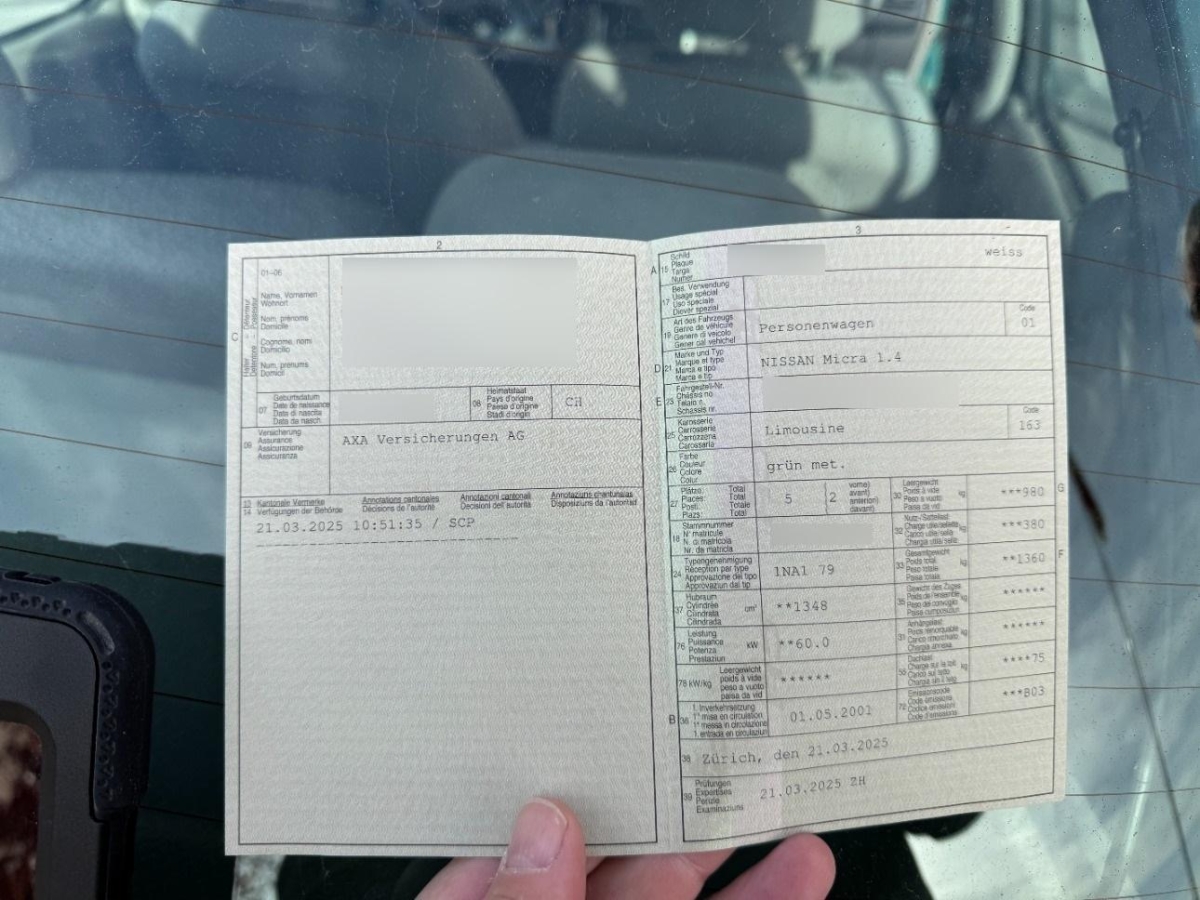 2
01-06
C
Name, Vornamen
Wohnort
Nom, prénoms
Domicile
Cognome, nomi
Domicilio
Num, prenums
Domicil
07
Geburtsdatum
Date de naissance
Data di nascita
Data da nasch.
08
Heimatstaat
Pays d'origine
Paese d'origine
Stadi d'origin
CH
09
Versicherung
Assurance
Assicurazione
Assicuranza
AXA Versicherungen AG
13
14
Kantonale Vermerke
Verfügungen der Behörde
Annotations cantonales
Décisions de l'autorité
Annotazioni cantonali
Decisioni dell'autorità
Annotaziuns chantunalas
Disposiziuns da l'autoritad
21.03.2025 10:51:35 / SCP
3
A
15
Schild
Plaque
Targa
Numer
weiss
17
Bes. Verwendung
Usage spécial
Uso speciale
Diever spezial
19
Art des Fahrzeugs
Genre de véhicule
Genere di veicolo
Gener dal vehichel
Personenwagen
Code
01
D
21
Marke und Typ
Marque et type
Marca e tipo
Marca e tip
NISSAN Micra 1.4
E
23
Fahrgestell-Nr.
Châssis no
Telaio n.
Schassis nr.
25
Karosserie
Carrosserie
Carrozzeria
Carossaria
Limousine
Code
163
26
Farbe
Couleur
Colore
Colur
grün met.
27
Plätze: Total
Places: Total
Posti: Totale
Plazs: Total
5
2
vorne)
avant)
anteriori)
davant)
30
Leergewicht
Poids à vide
Peso a vuoto
Paisa da vid
kg
***980
G
18
Stammnummer
N° matricule
N. di matricola
Nr. da matricla
32
Nutz-/Sattellast
Charge utile/sellette
Carico utile/sella
Chargia utila/sella
kg
***380
24
Typengenehmigung
Réception par type
Approvazione del tipo
Approvaziun dal tip
1NA1 79
33
Gesamtgewicht
Poids total
Peso totale
Paisa totala
kg
**1360
F
37
Hubraum
Cylindrée
Cilindrata
Cilindrada
cm³
**1348
35
Gewicht des Zuges
Poids de l'ensemble
Peso del convoglio
Paisa cumposiziun
kg
******
76
Leistung
Puissance
Potenza
Prestaziun
kW
**60.0
31
Anhängelast
Poids remorquable
Carico rimorchiato
Chargia annexa
kg
******
78 kW/kg
Leergewicht
poids à vide
peso a vuoto
paisa da vid
******
55
Dachlast
Charge sur le toit
Carico sul tetto
Chargia sin il tetg
kg
****75
B
36
1. Inverkehrsetzung
1re mise en circulation
1a messa in circolazione
1. entrada en circulaziun
01.05.2001
72
Emissionscode
Code émissions
Codice emissioni
Code d'emissiuns
***B03
38
Zürich, den 21.03.2025
39
Prüfungen
Expertises
Perizie
Examinaziuns
21.03.2025 ZH